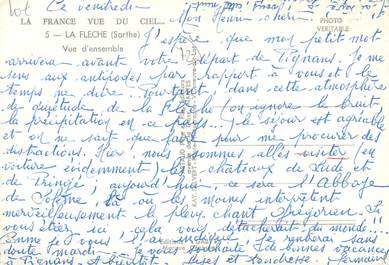 Ce vendredi
LA FRANCE VUE DU CIEL...
Mon Henri chéri
PHOTO VERITABLE
5 - LA FLECHE (Sarthe)
Vue d'ensemble
J'espère que mon petit mot
arrivera avant votre départ de Pignans. Je me
sens aux antipodes par rapport à vous et le
temps me dure. Pourtant, dans cette atmosphère
de quiétude de la Flèche (on ignore le bruit,
la précipitation en ce pays...) le séjour est agréable
et on ne sait que faire pour me procurer des
distractions. Hier, nous sommes allés visiter (en
voiture évidemment) les châteaux du Lude et
de ; aujourd'hui, ce sera l'Abbaye
de Solesmes où les moines interprètent
merveilleusement le plain-chant grégorien. Si
vous étiez ici cela vous détacherait du monde...!!
Comme je vous l'ai je rentrerai sans
doute mardi. Je vous souhaite de bonnes vacances
à Pignans. A bientôt. Bises et tendresse. Germaine